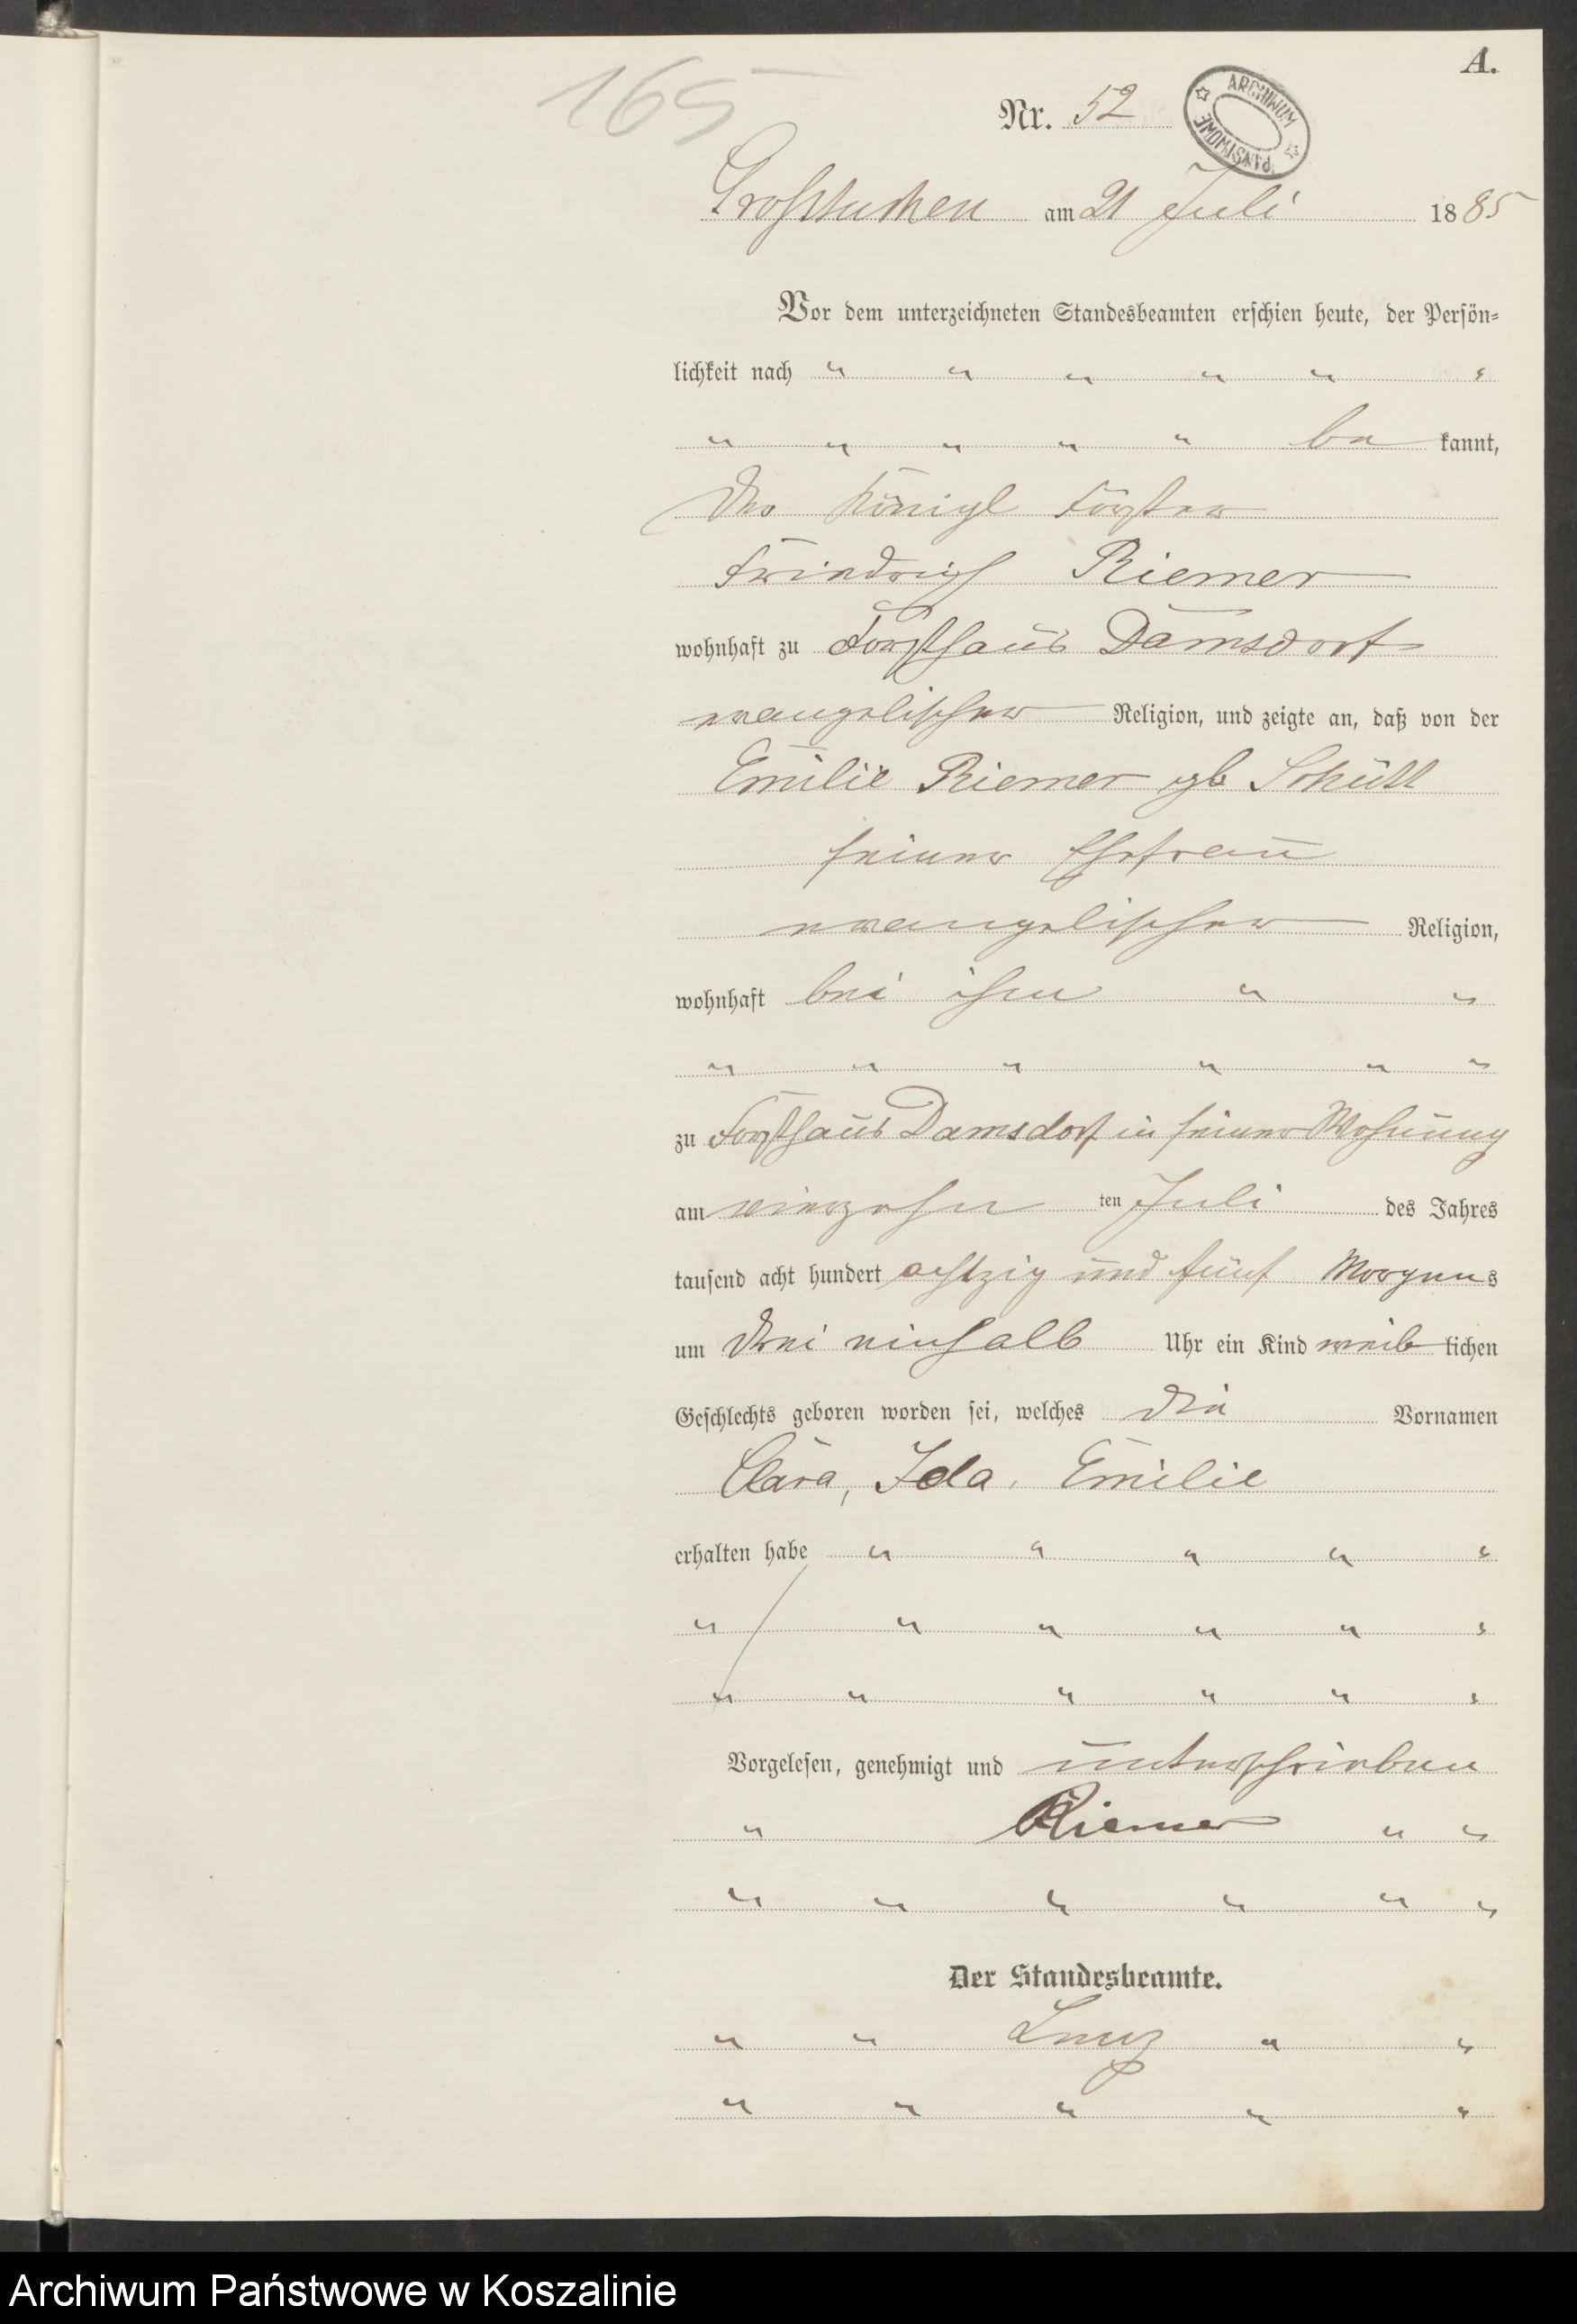 A.
165
Nr. 52
ARCHIWUM PAŃSTWOWE
Grosstuchen am 21 Juli 1885
Vor dem unterzeichneten Standesbeamten erschien heute, der Persön-
lichkeit nach " " " " " "
" " " " " be kannt,
der Königl Förster
Friedrich Riemer
wohnhaft zu Forsthaus Damsdorf
evangelischer Religion, und zeigte an, daß von der
Emilie Riemer gb Schütt
seiner Ehefrau
evangelischer Religion,
wohnhaft bei ihm " "
" " " " " "
zu Forsthaus Damsdorf in seiner Wohnung
am vierzehn ten Juli des Jahres
tausend acht hundert achtzig und fünf Morgens
um drei einhalb Uhr ein Kind weib lichen
Geschlechts geboren worden sei, welches die Vornamen
Clara, Ida, Emilie
erhalten habe " " " " "
" " " " " "
" " " " " "
Vorgelesen, genehmigt und unterschrieben
" Riemer " "
" " " " " "
Der Standesbeamte.
" " " "
" " " " "
Archiwum Państwowe w Koszalinie